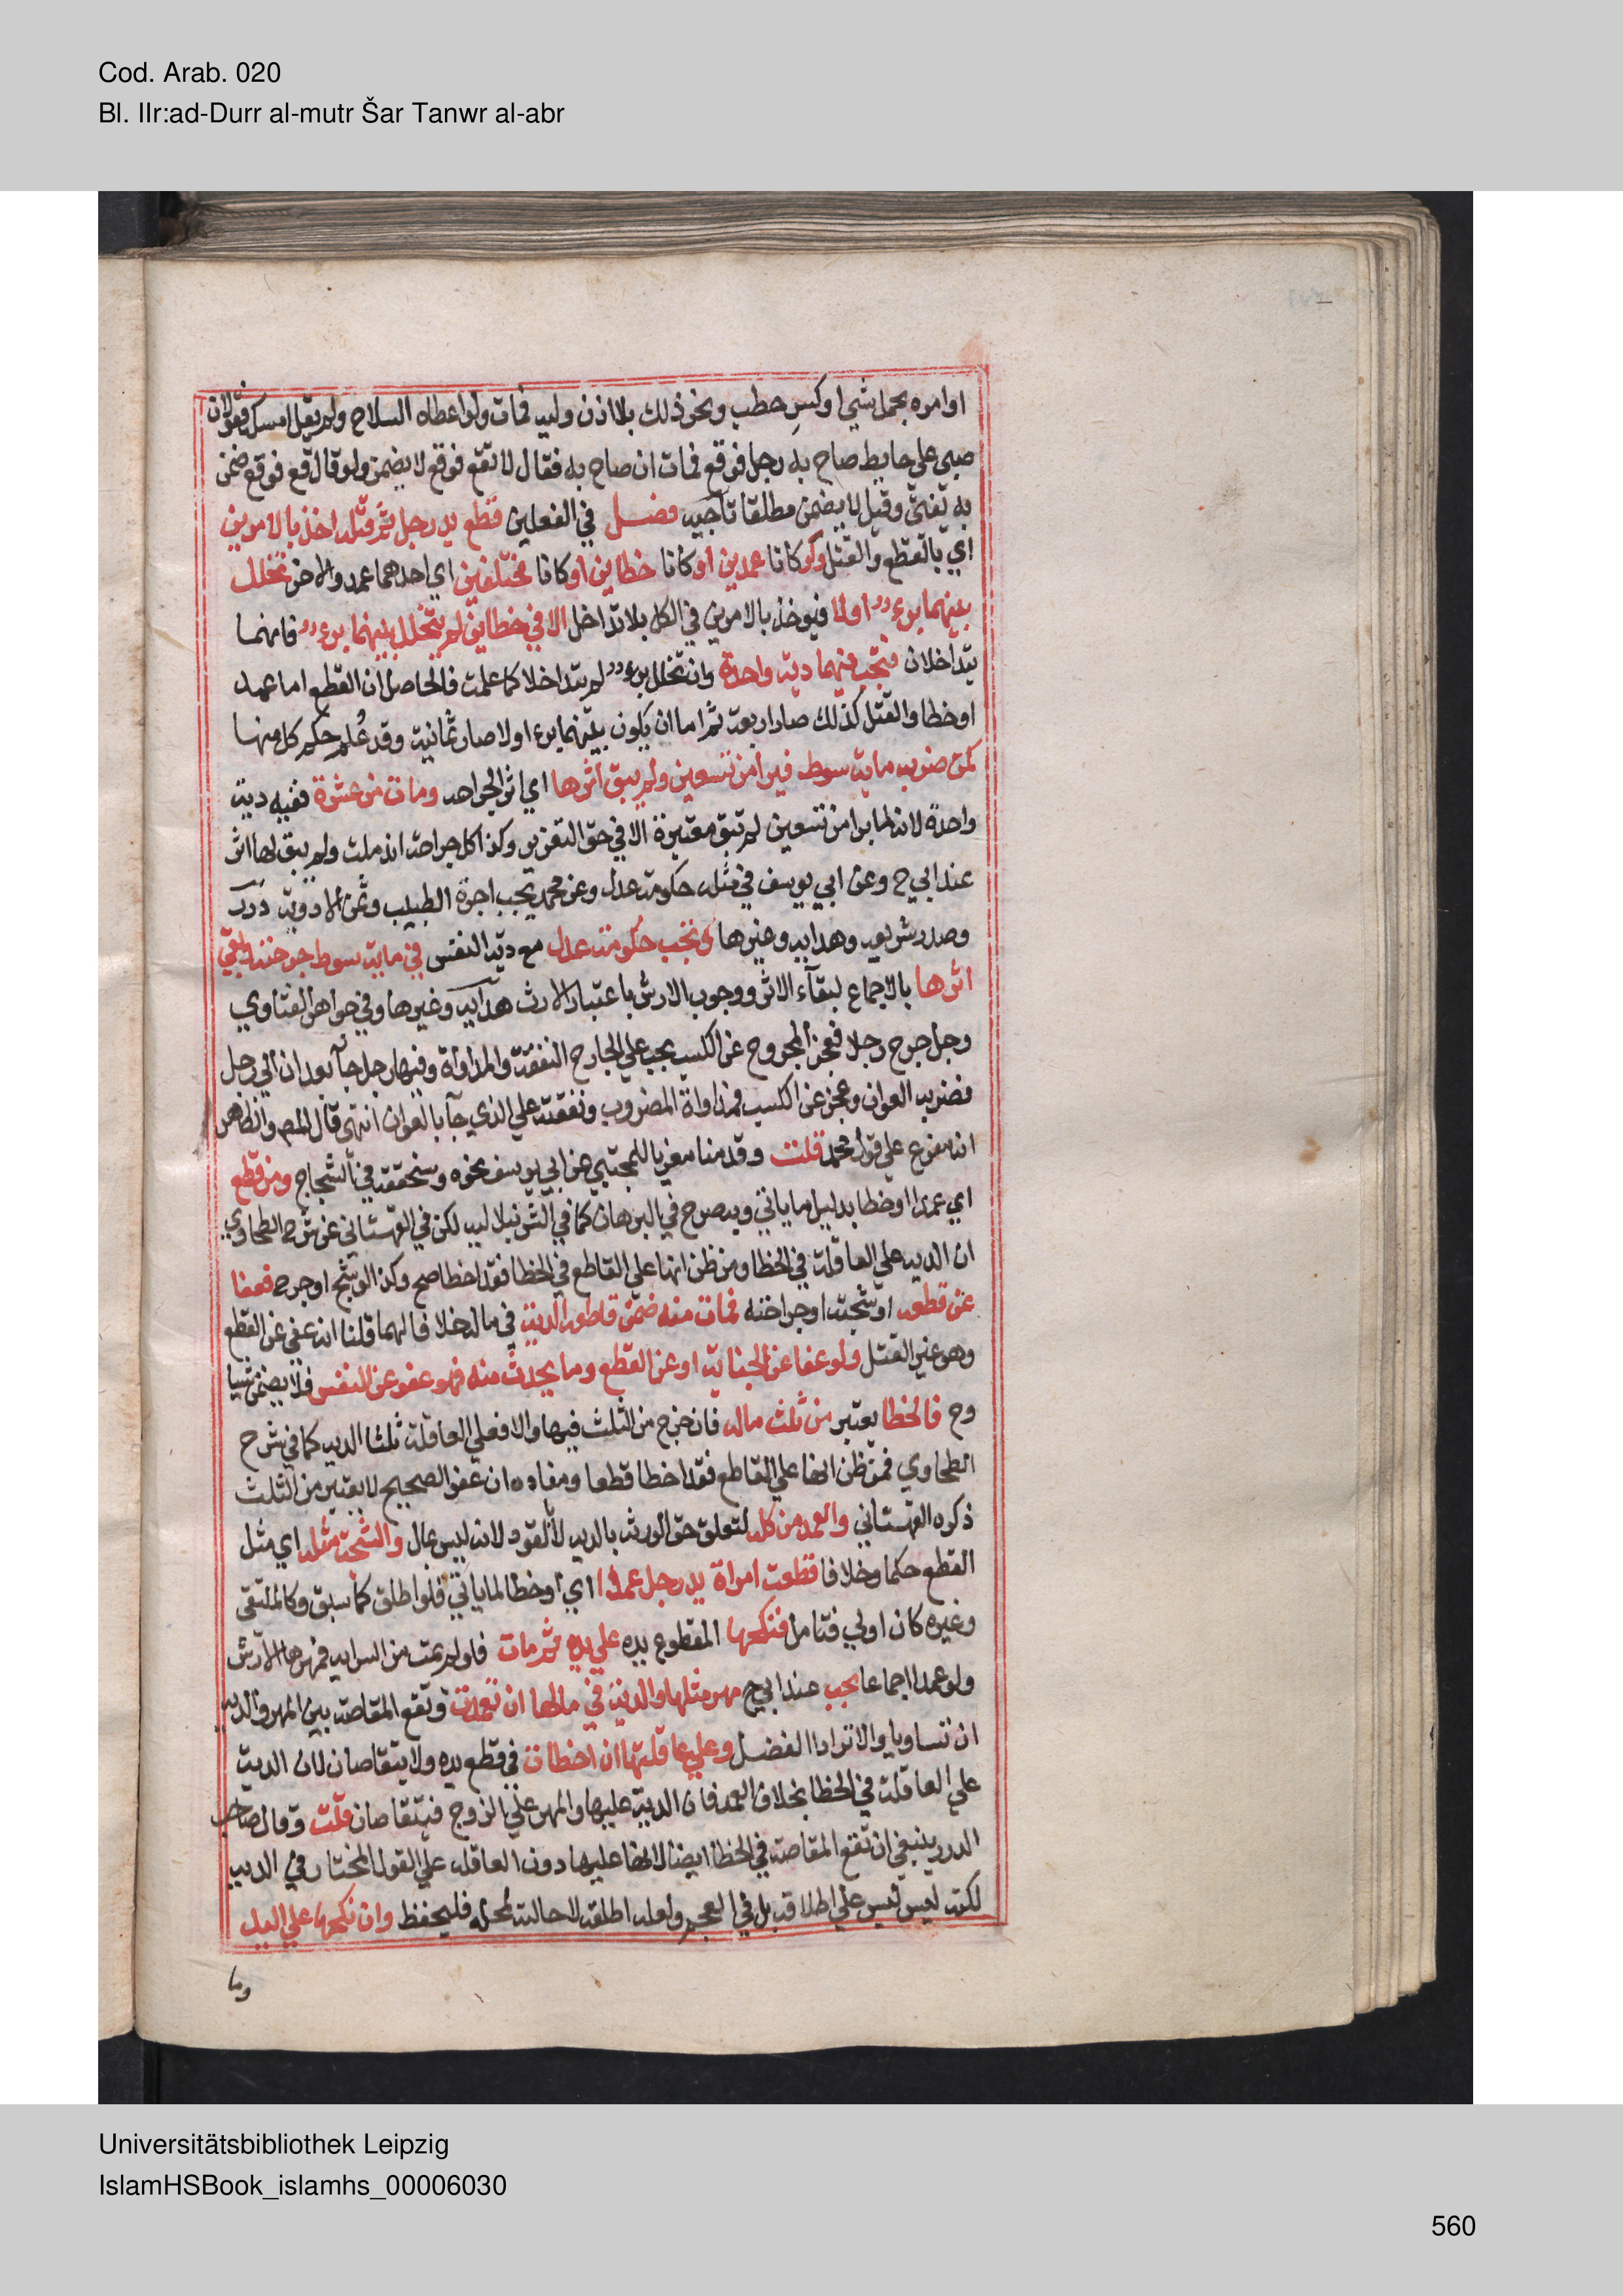 Cod. Arab. 020
Bl. IIr:ad-Durr al-mutr Šar Tanwr al-abr
او امره بحمل شيء او كسر حطب ونحو ذلك بلا اذن وليه فمات ولو اعطاه السلاح ولم يقل امسكه فقولان
صبي علي حايط صاح به رجل فوقع فمات ان صاح به فقال لا تقع فوقع لا يضمن ولو قال قع فوقع ضمن
به يفتي وقيل لا يضمن مطلقا تاجيه فصـل في الفعلين قطع يد رجل ثم قتله اخذ بالامرين
اي بالقطع والقتل ولو كانا عمدين او كانا خطاين او كانا مختلفين اي احدهما عمد والاخر تخلل
بينهما برء اولا فيوخذ بالامرين في الكل بلا تداخل الا في خطاين لم يتخلل بينهما برء فانهما
يتداخلان فتجب فيهما دية واحدة وان تخلل برء لم يتداخلا كما علمت فالحاصل ان القطع اما عمد
او خطا والقتل كذلك صار اربعة ثم اما ان يكون بينهما برء اولا صار ثمانية وقد علم حكم كل منها
كمن ضرب ماية سوط فبرا من تسعين ولم يبق اثرها اي اثر الجراحه ومات من عشرة ففيه دية
واحدة لانه لما برا من تسعين لم تبق معتبرة الا في حق التعزير وكذا كل جراحة اندملت ولم يبق لها اثر
عند ابي ح وعن ابي يوسف في مثله حكومة عدل وعن محمد تجب اجرة الطبيب وثمن الادوية درر
وصدر شريعه وهدايه وغيرها وتجب حكومة عدل مع دية النفس في ماية سوط جرحته وبقي
اثرها بالاجماع لبقاء الاثر ووجوب الارش باعتبار الارث هدايه وغيرها وفي جواهر الفتاوي
رجل جرح رجلا فعجز المجروح عن الكسب يجب علي الجارح النفقة والمداواة وفيها رجل جآ بعوان الي رجل
فضربه العوان وعجز عن الكسب فمداواة المضروب ونفقته علي الذي جآ بالعوان انتهي قال المص والظاهر
انه مفرع علي قول محمد قلت وقدمنا معزيا للمجتبي عن ابي يوسف نحوه وسنحققه في الشجاج ومن قطع
اي عمدا او خطا بدليل ما ياتي وبه صرح في البرهان كما في الشرنبلاليه لكن في القهستاني عن شرح الطحاوي
ان الديه علي العاقلة في الخطا ومن ظن انها علي القاطع في الخطا فقد اخطا صح وكذا لو شج او جرح فعفا
عن قطعه او شجته او جراحته فمات منه ضمن قاطعه الدية في ماله خلافا لهما قلنا انه عفي عن القطع
وهو غير القتل ولو عفا عن الجناية او عن القطع وما يحدث منه فهو عفو عن النفس فلا يضمن شيا
وح فالخطا يعتبر من ثلث ماله فان خرج من الثلث فيها والا فعلي العاقلة ثلثا الديه كما في شرح
الطحاوي فمن ظن انها علي القاطع فقد اخطا قطعا ومفاده ان عفو الصحيح لا يعتبر من الثلث
ذكره القهستاني والعمد من كله لتعلق حق الورثه بالديه لا القود لانه ليس بمال والشجة مثله اي مثل
القطع حكما وخلافا قطعت امراة يد رجل عمدا اي او خطا لما ياتي فلو اطلق كما سبق وكالملتقي
وغيره كان اولي فتامل فنكحها المقطوع يده علي يده ثم مات فلو لم يمت من السرايه فمهرها الارش
ولو عمدا اجماعا يجب عند ابي ح مهر مثلها والدية في مالها ان تعمدت وتقع المقاصة بين المهر والديه
ان تساويا والا ترادا الفضل وعلي عاقلتها ان اخطات في قطع يده ولا يتقاصان لان الدية
علي العاقلة في الخطا بخلاف العمد فان الدية عليها والمهر علي الزوج فيتقاصان قلت وقال صاحب
الدرر ينبغي ان تقع المقاصة في الخطا ايضا لانها عليها دون العاقله علي القول المختار في الديه
لكنه ليس ليس علي اطلاقه بل في العجم ولعله اطلقه لحالة لمحله فليحفظ وان نكحها علي اليد
وما
Universitätsbibliothek Leipzig
IslamHSBook_islamhs_00006030
560